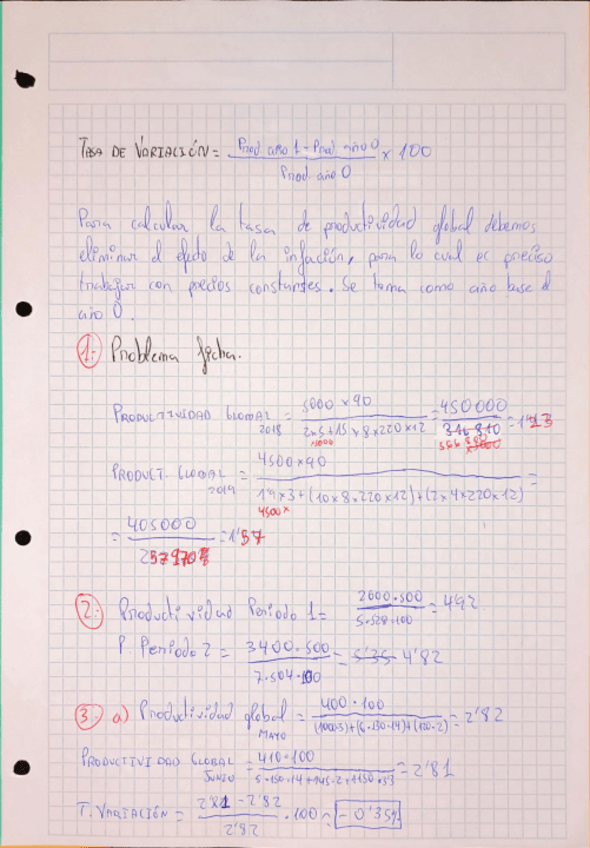 TASA DE VARIACIÓN = Prod. año 1 - Prod. año 0 / Prod. año 0 x 100
Para calcular la tasa de productividad global debemos
eliminar el efecto de la inflación, para lo cual es preciso
trabajar con precios constantes. Se toma como año base el
año 0.
1.- Problema ficha.
PRODUCTIVIDAD GLOBAL 2018 = 5000 x 90 / = 450000 / = 1'23
PRODUCT. GLOBAL 2019 = 4500x90 / 1'9x3+(10x8x220x12)+(2x4x220x12) =
4500x
= 405000 / = 1'57
2.- Productividad Periodo 1 = 2000.500 / 5.528.100 = 492
P. Periodo 2 = 3400.500 / 7.504.100 = 5'35 4'82
3.- a) Productividad global MAYO = 400.100 / = 2'82
PRODUCTIVIDAD GLOBAL JUNIO = 410.100 / = 2'81
T. VARIACIÓN = 2'81 - 2'82 / 2'82 . 100 = - 0'35%